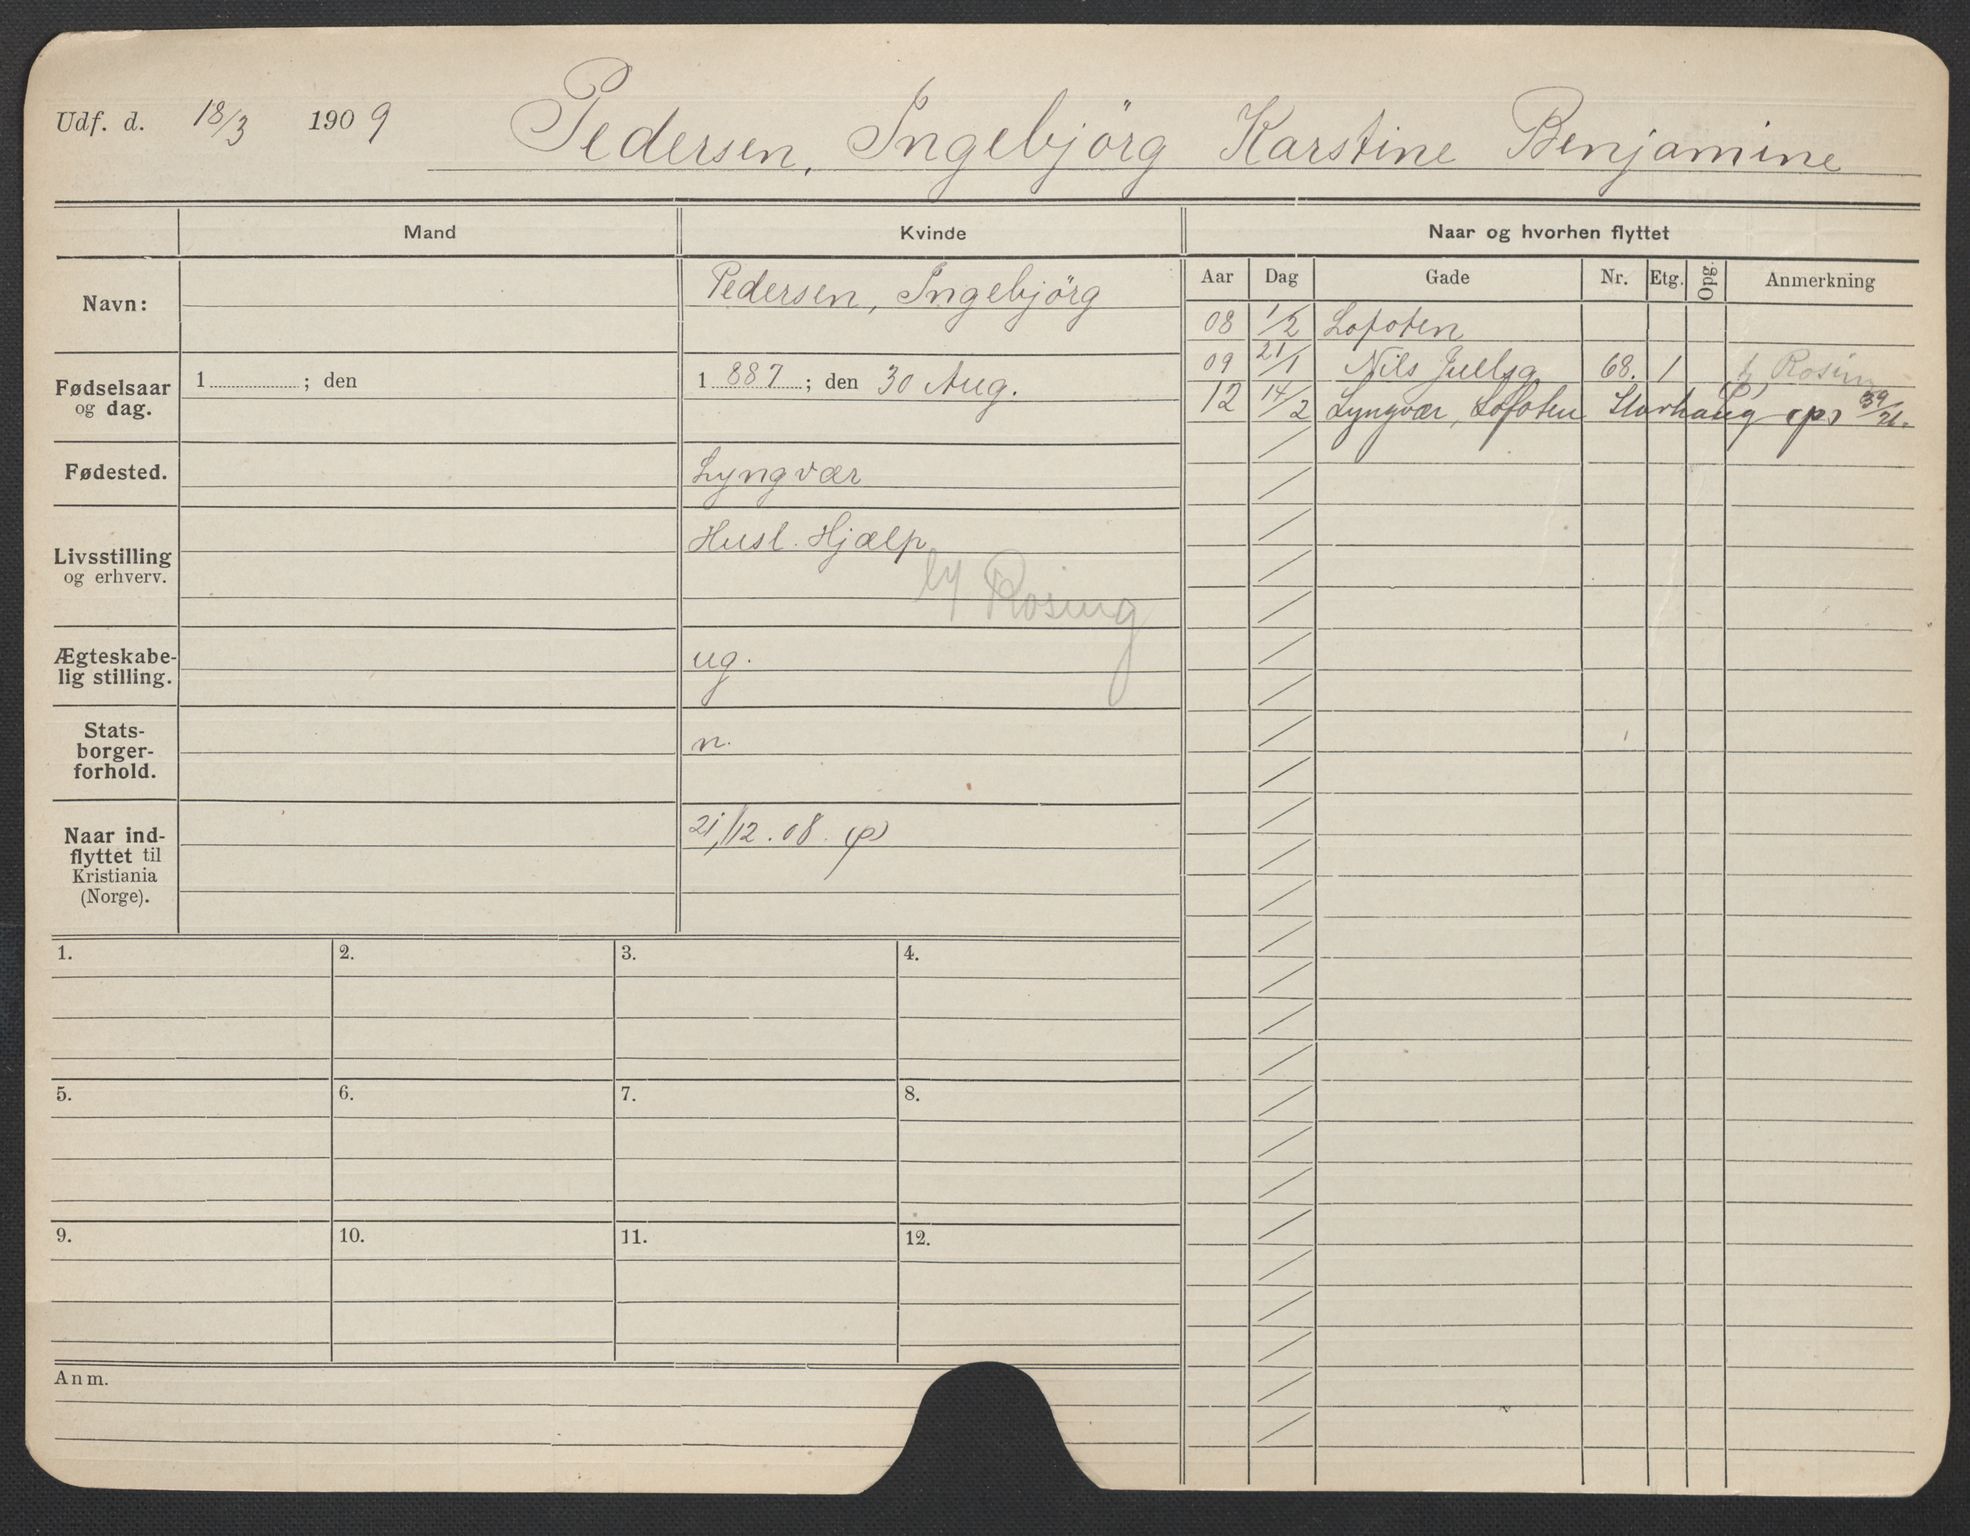 Udf. d. 18/3 1909 Pedersen, Ingebjörg Karstine Benjamine
Mand Kvinde Naar og hvorhen flyttet
Aar Dag Gade Nr. Etg. Opg. Anmerkning
Navn: Pedersen, Ingebjörg
08 1/2 Lofoten
09 21/1 Nils Juelsg 68. 1 h/ Rosing
12 14/2 Lyngvær, Lofoten Storhaug (p)
Fødselsaar og dag. 1 ; den 1 887 ; den 30 Aug.
Fødested. Lyngvær
Livsstilling og erhverv. Husl. Hjælp
h/ Rosing
Ægteskabe-
lig stilling. ug.
Stats-
borger-
forhold. n.
Naar ind-
flyttet til
Kristiania
(Norge). 21/12. 08. (p)
1. 2. 3. 4.
5. 6. 7. 8.
9. 10. 11. 12.
Anm.